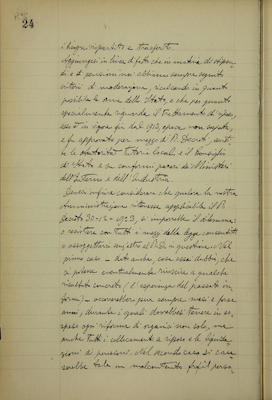 24
i luoghi ripartiti e trasferte.
Aggiungesi in linea di fatto che in materia di stipen-
di e di pensioni noi abbiamo sempre seguito
criteri di moderazione, ricalcando in quanto
possibile le orme dello Stato, e che per quanto
specialmente riguarda il trattamento di riposo,
esso è in vigore fin dal 1913, epoca non sospetta,
e fu approvato per mezzo di R. Decreto, sentite
le Autorità Tutorie locali, e il Consiglio
di Stato e su conformi pareri dei Ministeri
dell'Interno e dell'Industria.
Devesi infine considerare che qualora la nostra
Amministrazione ritenesse applicabile il R.
Decreto 30-12-1923, s'imporrebbe il dilemma:
o resistere con tutti i mezzi della legge consentiti
o assoggettarsi
primo caso - dato anche, cosa assai dubbia, che
si potesse eventualmente riuscire a qualche
risultato concreto (l'esperienza del passato in-
formi) - occorrerebbero pur sempre mesi e forse
anni, durante i quali dovrebbesi tenere in so-
speso ogni riforma di organici non solo, ma
anche tutti i collocamenti a riposo e le liquida-
zioni di pensioni. Nel secondo caso si cau-
serebbe tale un malcontento fra il perso-